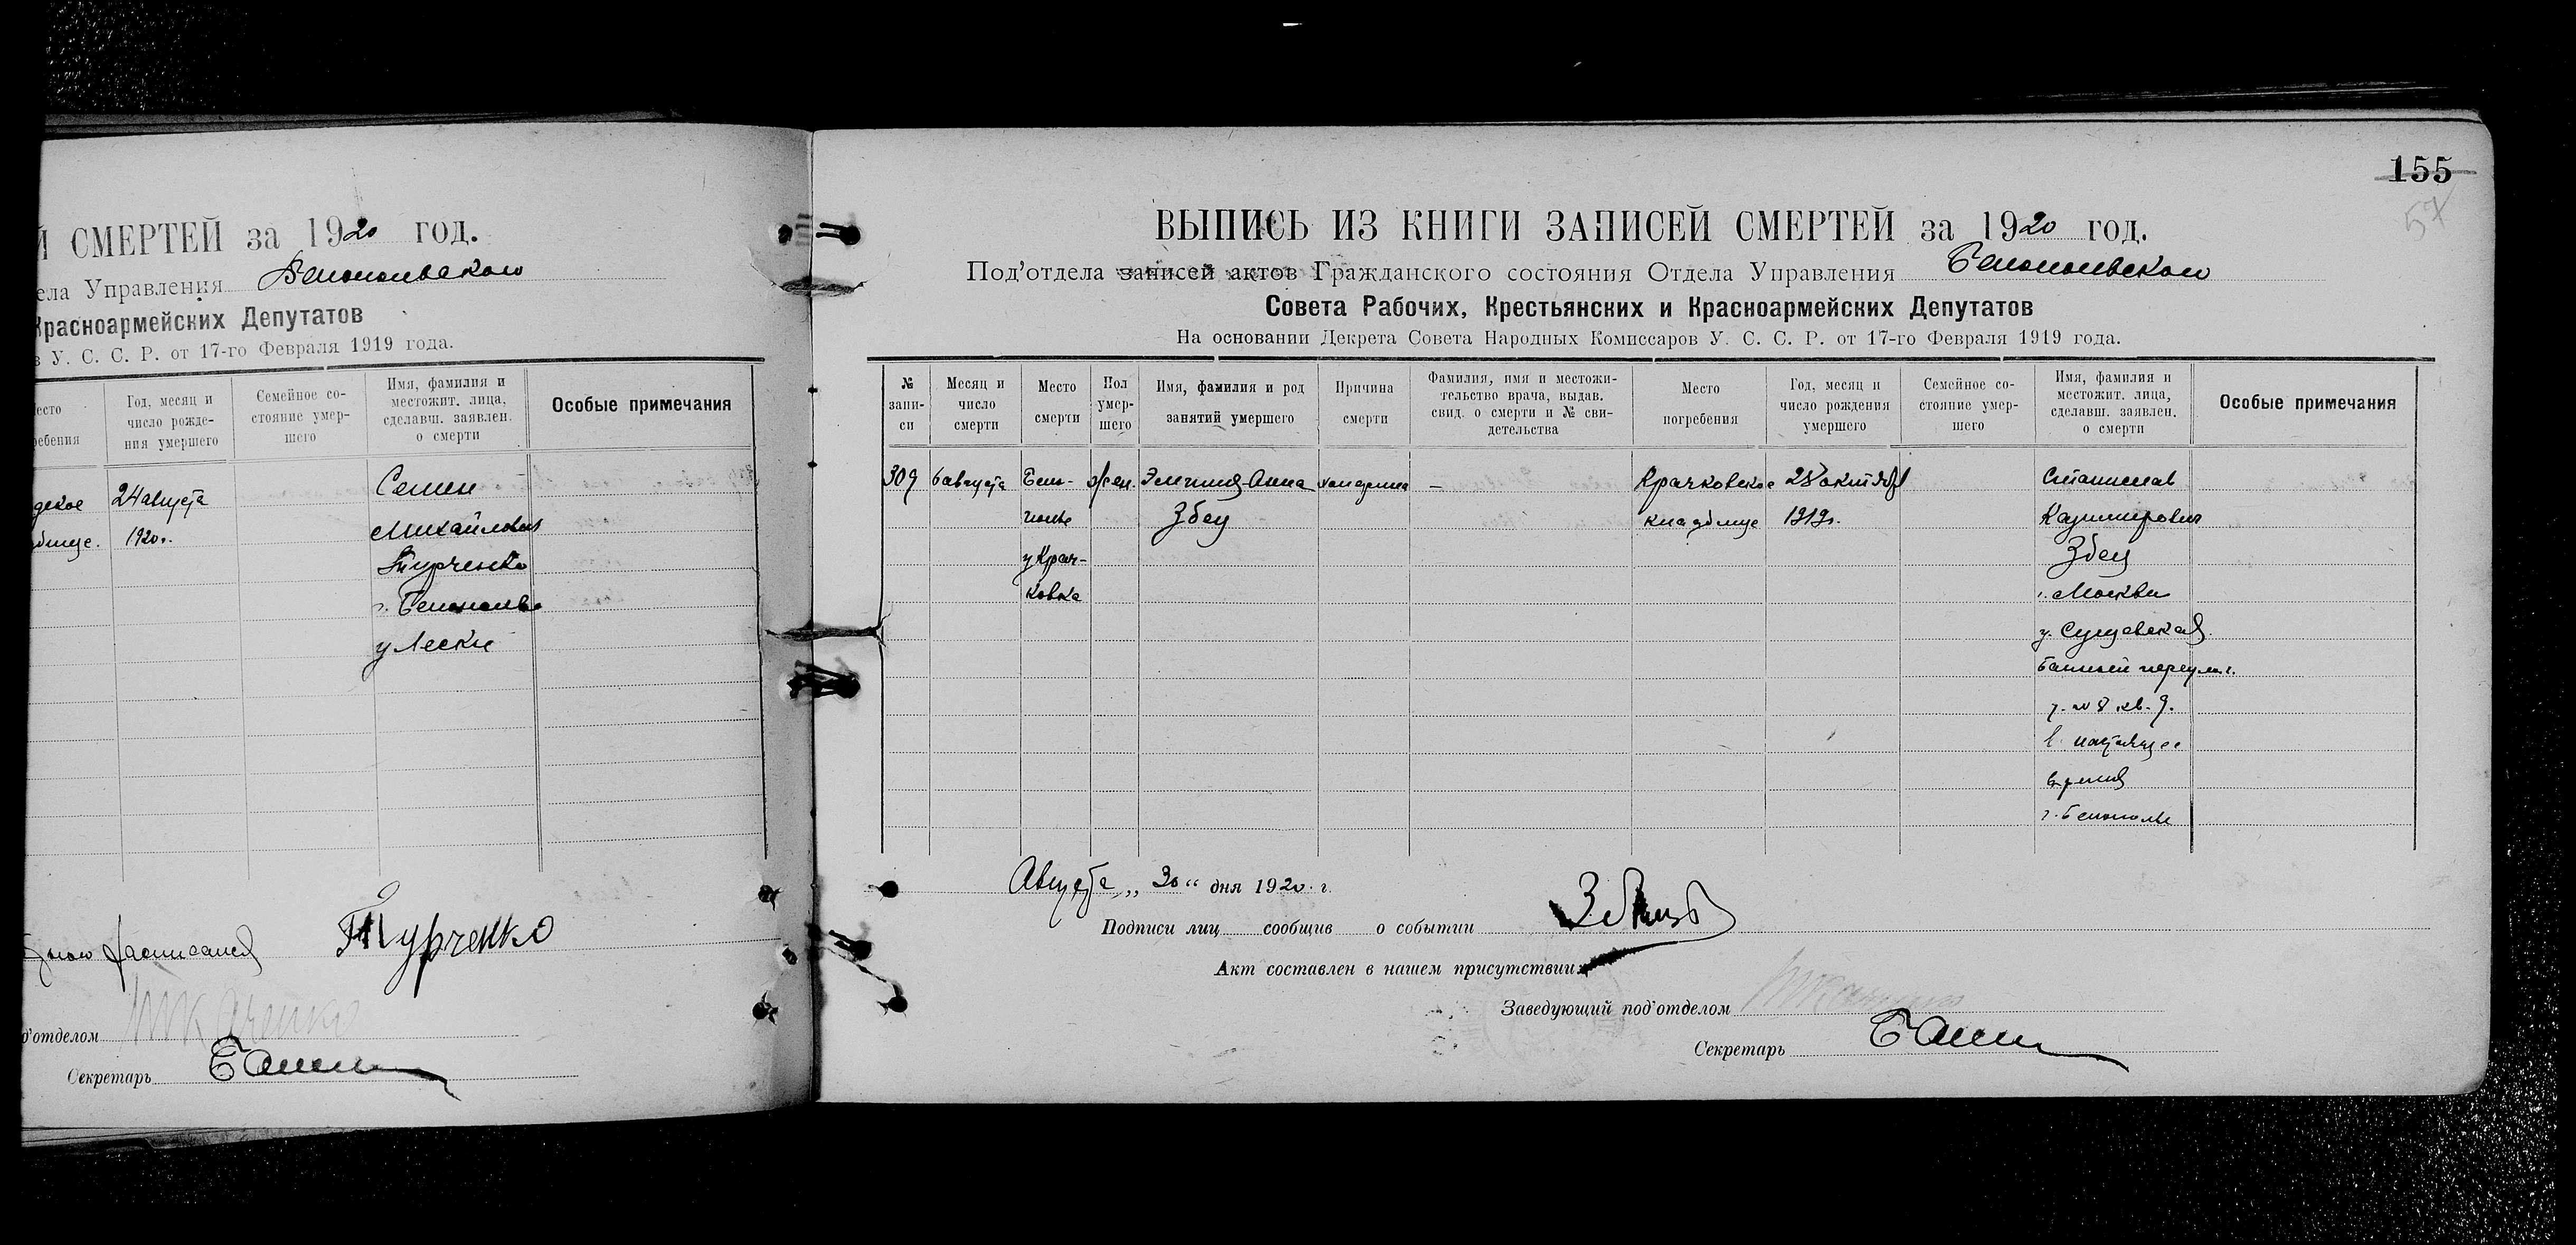 Й СМЕРТЕЙ за 1920 год.
ела Управления Белопольского
Красноармейских Депутатов
в У. С. С. Р. от 17-го Февраля 1919 года.
есто
ребения
Год, месяц и
число рожде-
ния умершего
Семейное со-
стояние умер-
шего
Имя, фамилия и
местожит. лица,
сделавш. заявлен.
о смерти
Особые примечания
дское 24 августа Семен
дбище. 1920 г. Михайлович
Турченко
г. Белополье
у Лески
расписался Турченко
д'отделом Ткаченко
Секретарь
155
57
ВЫПИСЬ ИЗ КНИГИ ЗАПИСЕЙ СМЕРТЕЙ за 1920 год.
Под'отдела записей актов Гражданского состояния Отдела Управления Белопольского
Совета Рабочих, Крестьянских и Красноармейских Депутатов
На основании Декрета Совета Народных Комиссаров У. С. С. Р. от 17-го Февраля 1919 года.
№
запи-
си
Месяц и
число
смерти
Место
смерти
Пол
умер-
шего
Имя, фамилия и род
занятий умершего
Причина
смерти
Фамилия, имя и местожи-
тельство врача, выдав.
свид. о смерти и № сви-
детельства
Место
погребения
Год, месяц и
число рождения
умершего
Семейное со-
стояние умер-
шего
Имя, фамилия и
местожит. лица,
сделавш. заявлен.
о смерти
Особые примечания
309 6 августа Бело- жен. Эмилия-Анна холерина — Крачковское 28 октября Станислав
полье Збец кладбище 1919 г. Казимирович
у Крач- Збец
ковка г. Москва
у. Сущевская
Банный переул.
д. № 8 кв. 9.
в настоящее
время
г. Белополье
Августа „ 30 “ дня 1920 г.
Подписи лиц сообщив о событии
Акт составлен в нашем присутствии:
Заведующий под'отделом Ткаченко
Секретарь